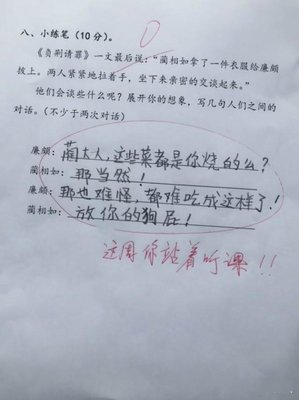 0
八、小练笔（10分）。
《负荆请罪》一文最后说：“蔺相如拿了一件衣服给廉颇
披上。两人紧紧地拉着手，坐下来亲密的交谈起来。”
他们会谈些什么呢？展开你的想象，写几句人们之间的
对话。（不少于两次对话）
廉颇：蔺大人，这些菜都是你烧的么？
蔺相如：那当然！
廉颇：那也难怪，都难吃成这样了！
蔺相如：放你的狗屁！
这周你站着听课！！